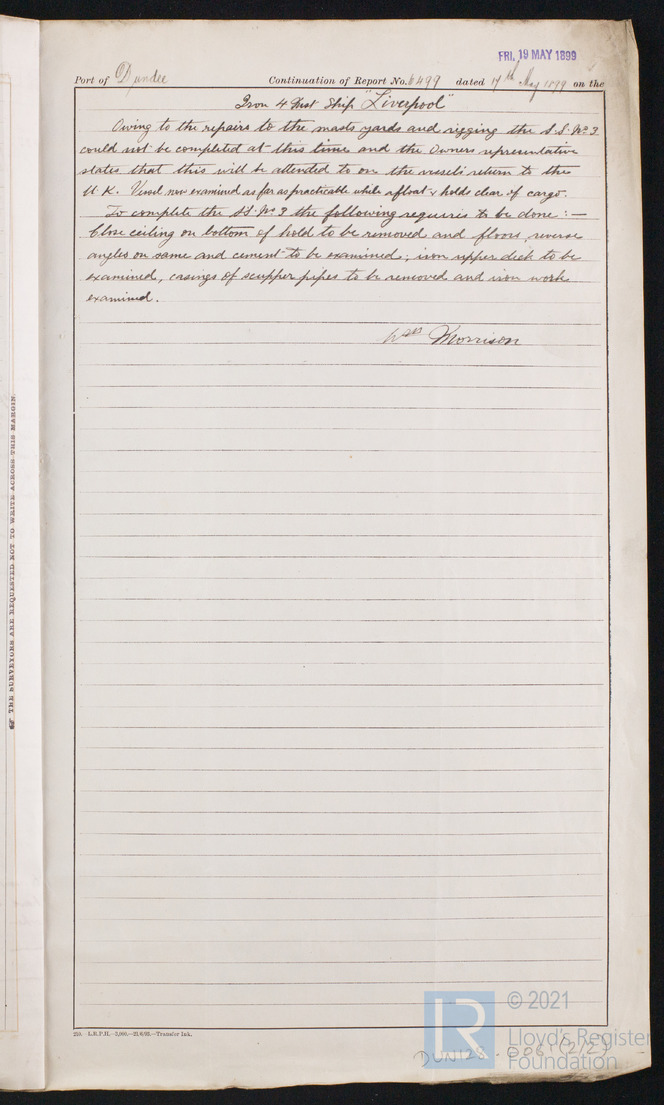 FRI. 19 MAY 1899
Port of Dundee Continuation of Report No. 6499 dated 17th May 1899 on the
Iron 4 Mast Ship "Liverpool"
Owing to the repairs to the masts yards and rigging the S.S. No 3
could not be completed at this time and the Owners representative
states that this will be attended to on the vessels return to the
U.K. Vessel now examined as far as practicable while afloat & holds clear of cargo.
To complete the SS. No 3 the following requires to be done :—
Close ceiling on bottom of hold to be removed and floors, reverse
angles on same and cement to be examined; iron upper deck to be
examined, casings of scupper pipes to be removed and iron work
examined.
Wm Morrison
THE SURVEYORS ARE REQUESTED NOT TO WRITE ACROSS THIS MARGIN.
L.R.P.H.—3,000.—21/6/93.—Transfer Ink.
LR
© 2021
Lloyd's Register
Foundation
DUN128-006 (2/2)